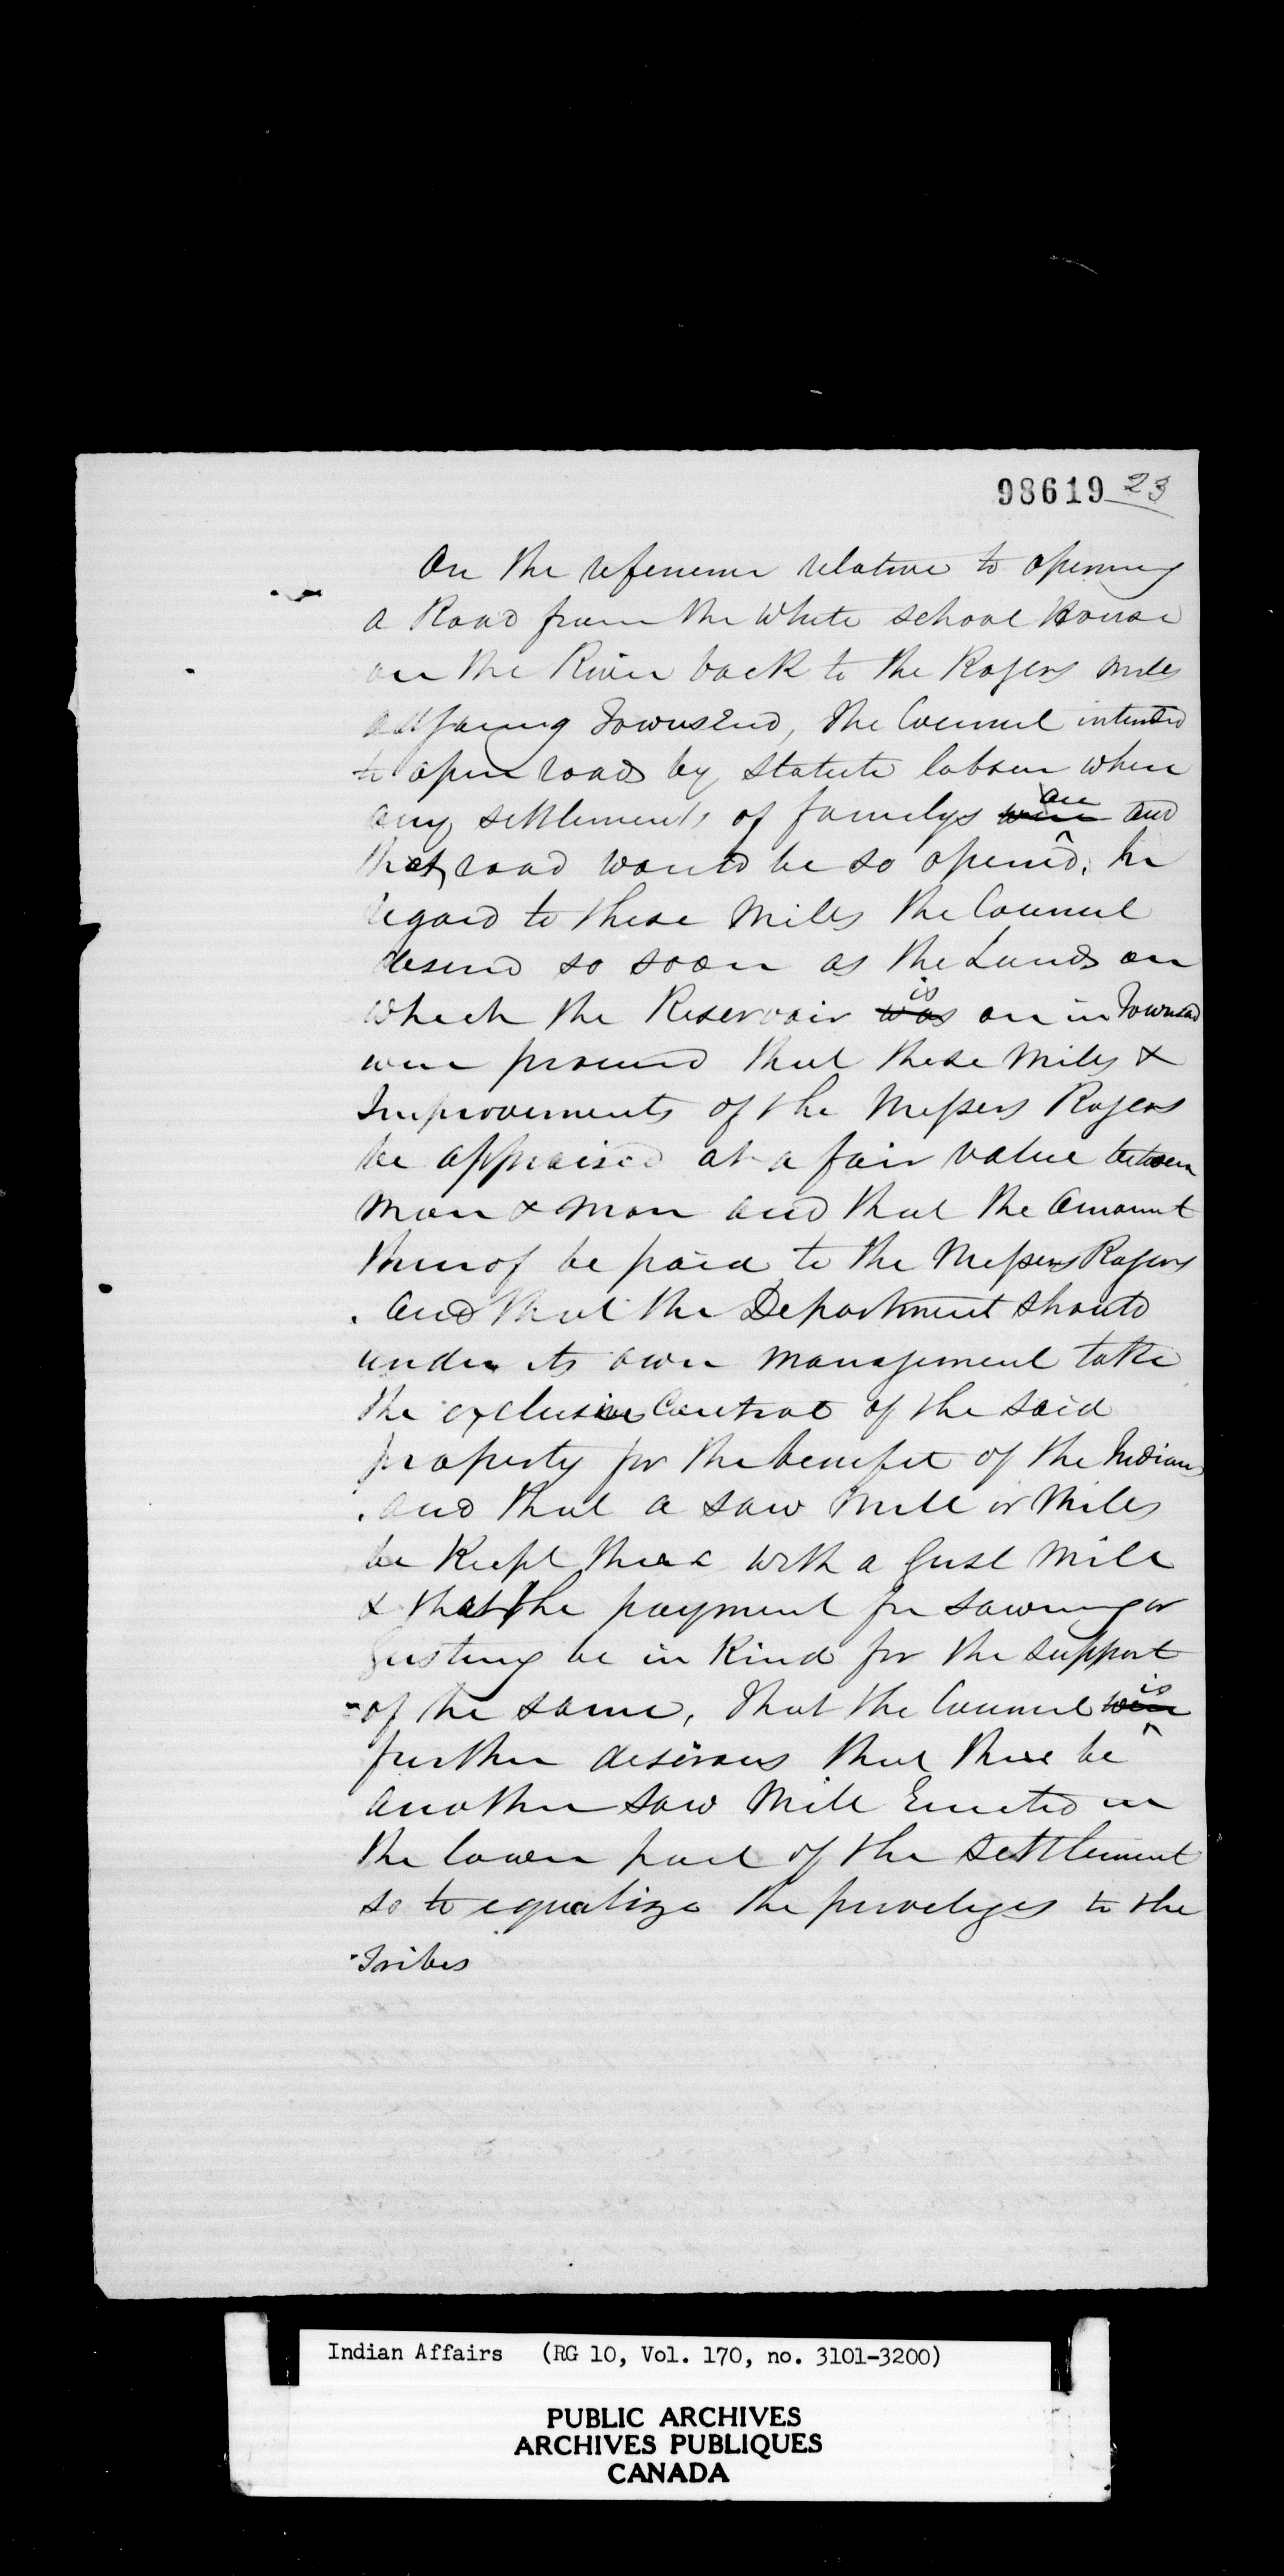 98619 23
On the reference relative to opening
a Road from the White school House
on the River back to the Rogers mills
adjoining Townsend, the Council intended
to open roads by statute labour where
any settlements of familys were are and
that road would be so opened. In
regard to these Mills the Council
desired so soon as the Lands on
which the Reservoir was is on in Townsend
were procured that these Mills &
Improvements of the Messers Rogers
be appraised at a fair value between
man & man and that the amount
thereof be paid to the Messers Rogers
and that the Department should
under its own management take
the exclusive Control of the said
property for the benefit of the Indians
and that a saw Mill or Mills
be Kept there with a Gust Mill
& that the payment for sawing or
Gusting be in Kind for the support
of the same, that the Council were is
further desirous that there be
another saw Mill Erected in
the lower part of the settlement
so to equalize the priveleges to the
Tribes
Indian Affairs (RG 10, Vol. 170, no. 3101-3200)
PUBLIC ARCHIVES
ARCHIVES PUBLIQUES
CANADA